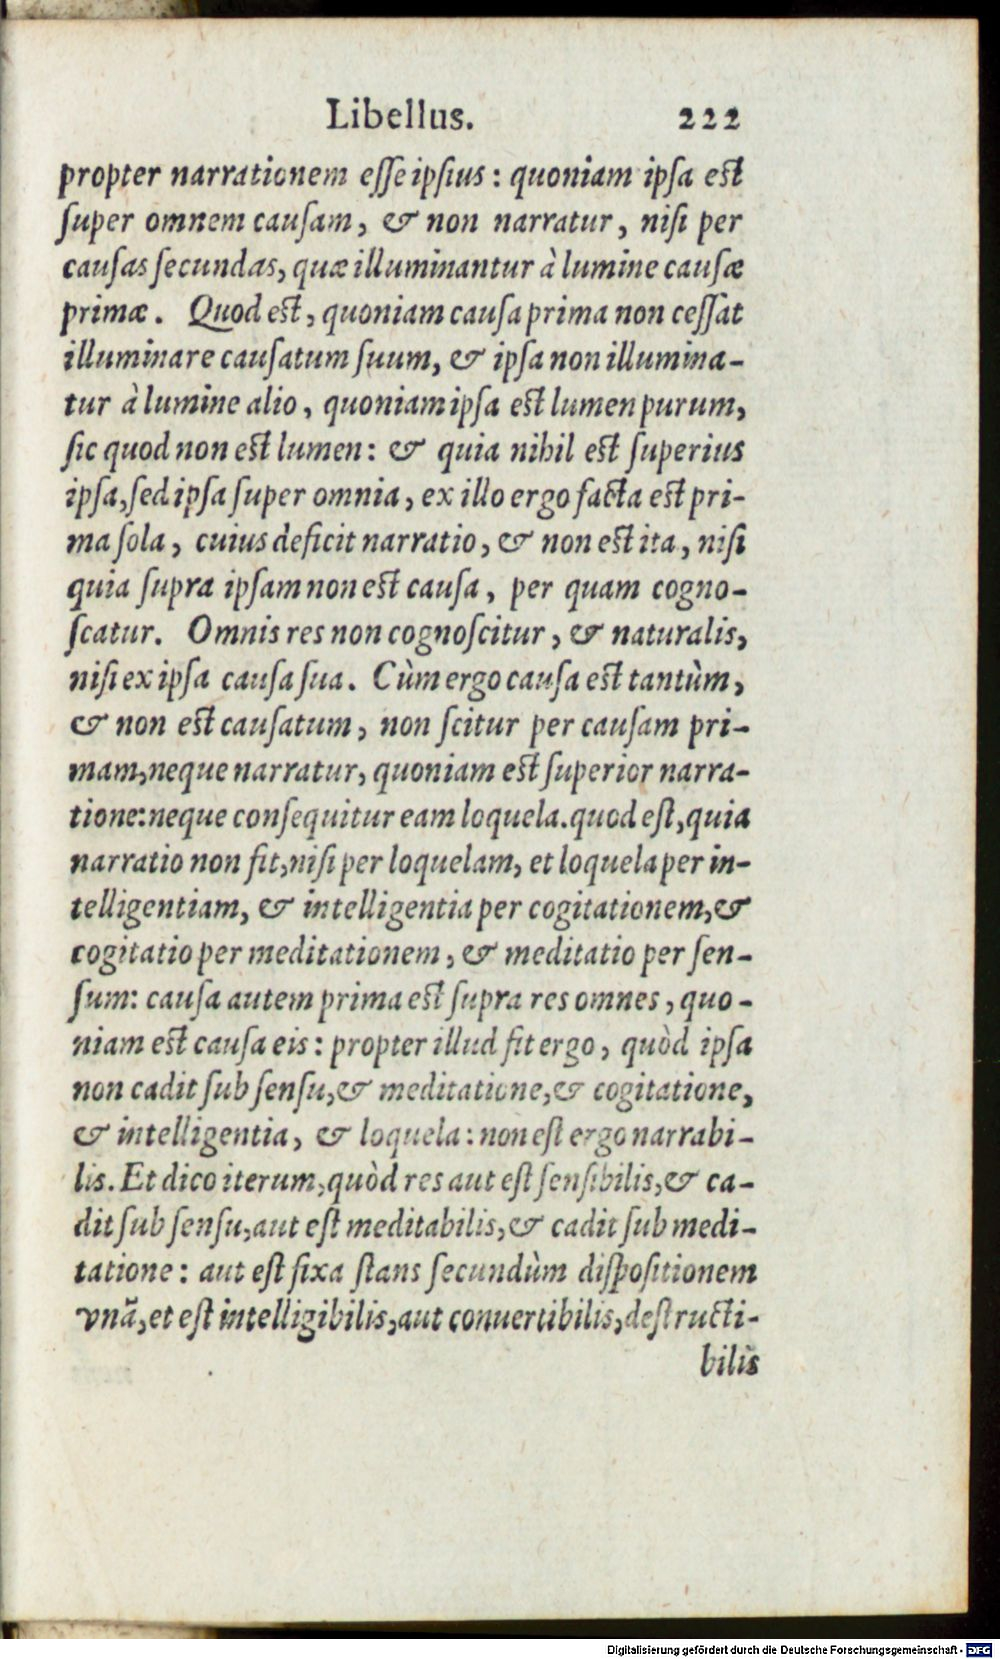 Libellus. 222
propter narrationem eſſe ipſius: quoniam ipſa est
ſuper omnem cauſam, & non narratur, niſi per
cauſas ſecundas, quæ illuminantur à lumine cauſæ
primæ. Quod est, quoniam cauſa prima non ceſſat
illuminare cauſatum ſuum, & ipſa non illumina-
tur à lumine alio, quoniam ipſa est lumen purum,
ſic quod non est lumen: & quia nihil est ſuperius
ipſa, ſed ipſa ſuper omnia, ex illo ergo facta est pri-
ma ſola, cuius deficit narratio, & non est ita, niſi
quia ſupra ipſam non est cauſa, per quam cogno-
ſcatur. Omnis res non cognoſcitur, & naturalis,
niſi ex ipſa cauſa ſua. Cùm ergo cauſa est tantùm,
& non est cauſatum, non ſcitur per cauſam pri-
mam, neque narratur, quoniam est ſuperior narra-
tione: neque conſequitur eam loquela. quod eſt, quia
narratio non fit, niſi per loquelam, et loquela per in-
telligentiam, & intelligentia per cogitationem, &
cogitatio per meditationem, & meditatio per ſen-
ſum: cauſa autem prima est ſupra res omnes, quo-
niam est cauſa eis: propter illud fit ergo, quòd ipſa
non cadit ſub ſenſu, & meditatione, & cogitatione,
& intelligentia, & loquela: non eſt ergo narrabi-
lis. Et dico iterum, quòd res aut eſt ſenſibilis, & ca-
dit ſub ſenſu, aut eſt meditabilis, & cadit ſub medi-
tatione: aut eſt fixa ſtans ſecundùm diſpoſitionem
vnã, et eſt intelligibilis, aut conuertibilis, destructi-
bilis
Digitalisierung gefördert durch die Deutsche Forschungsgemeinschaft - DFG